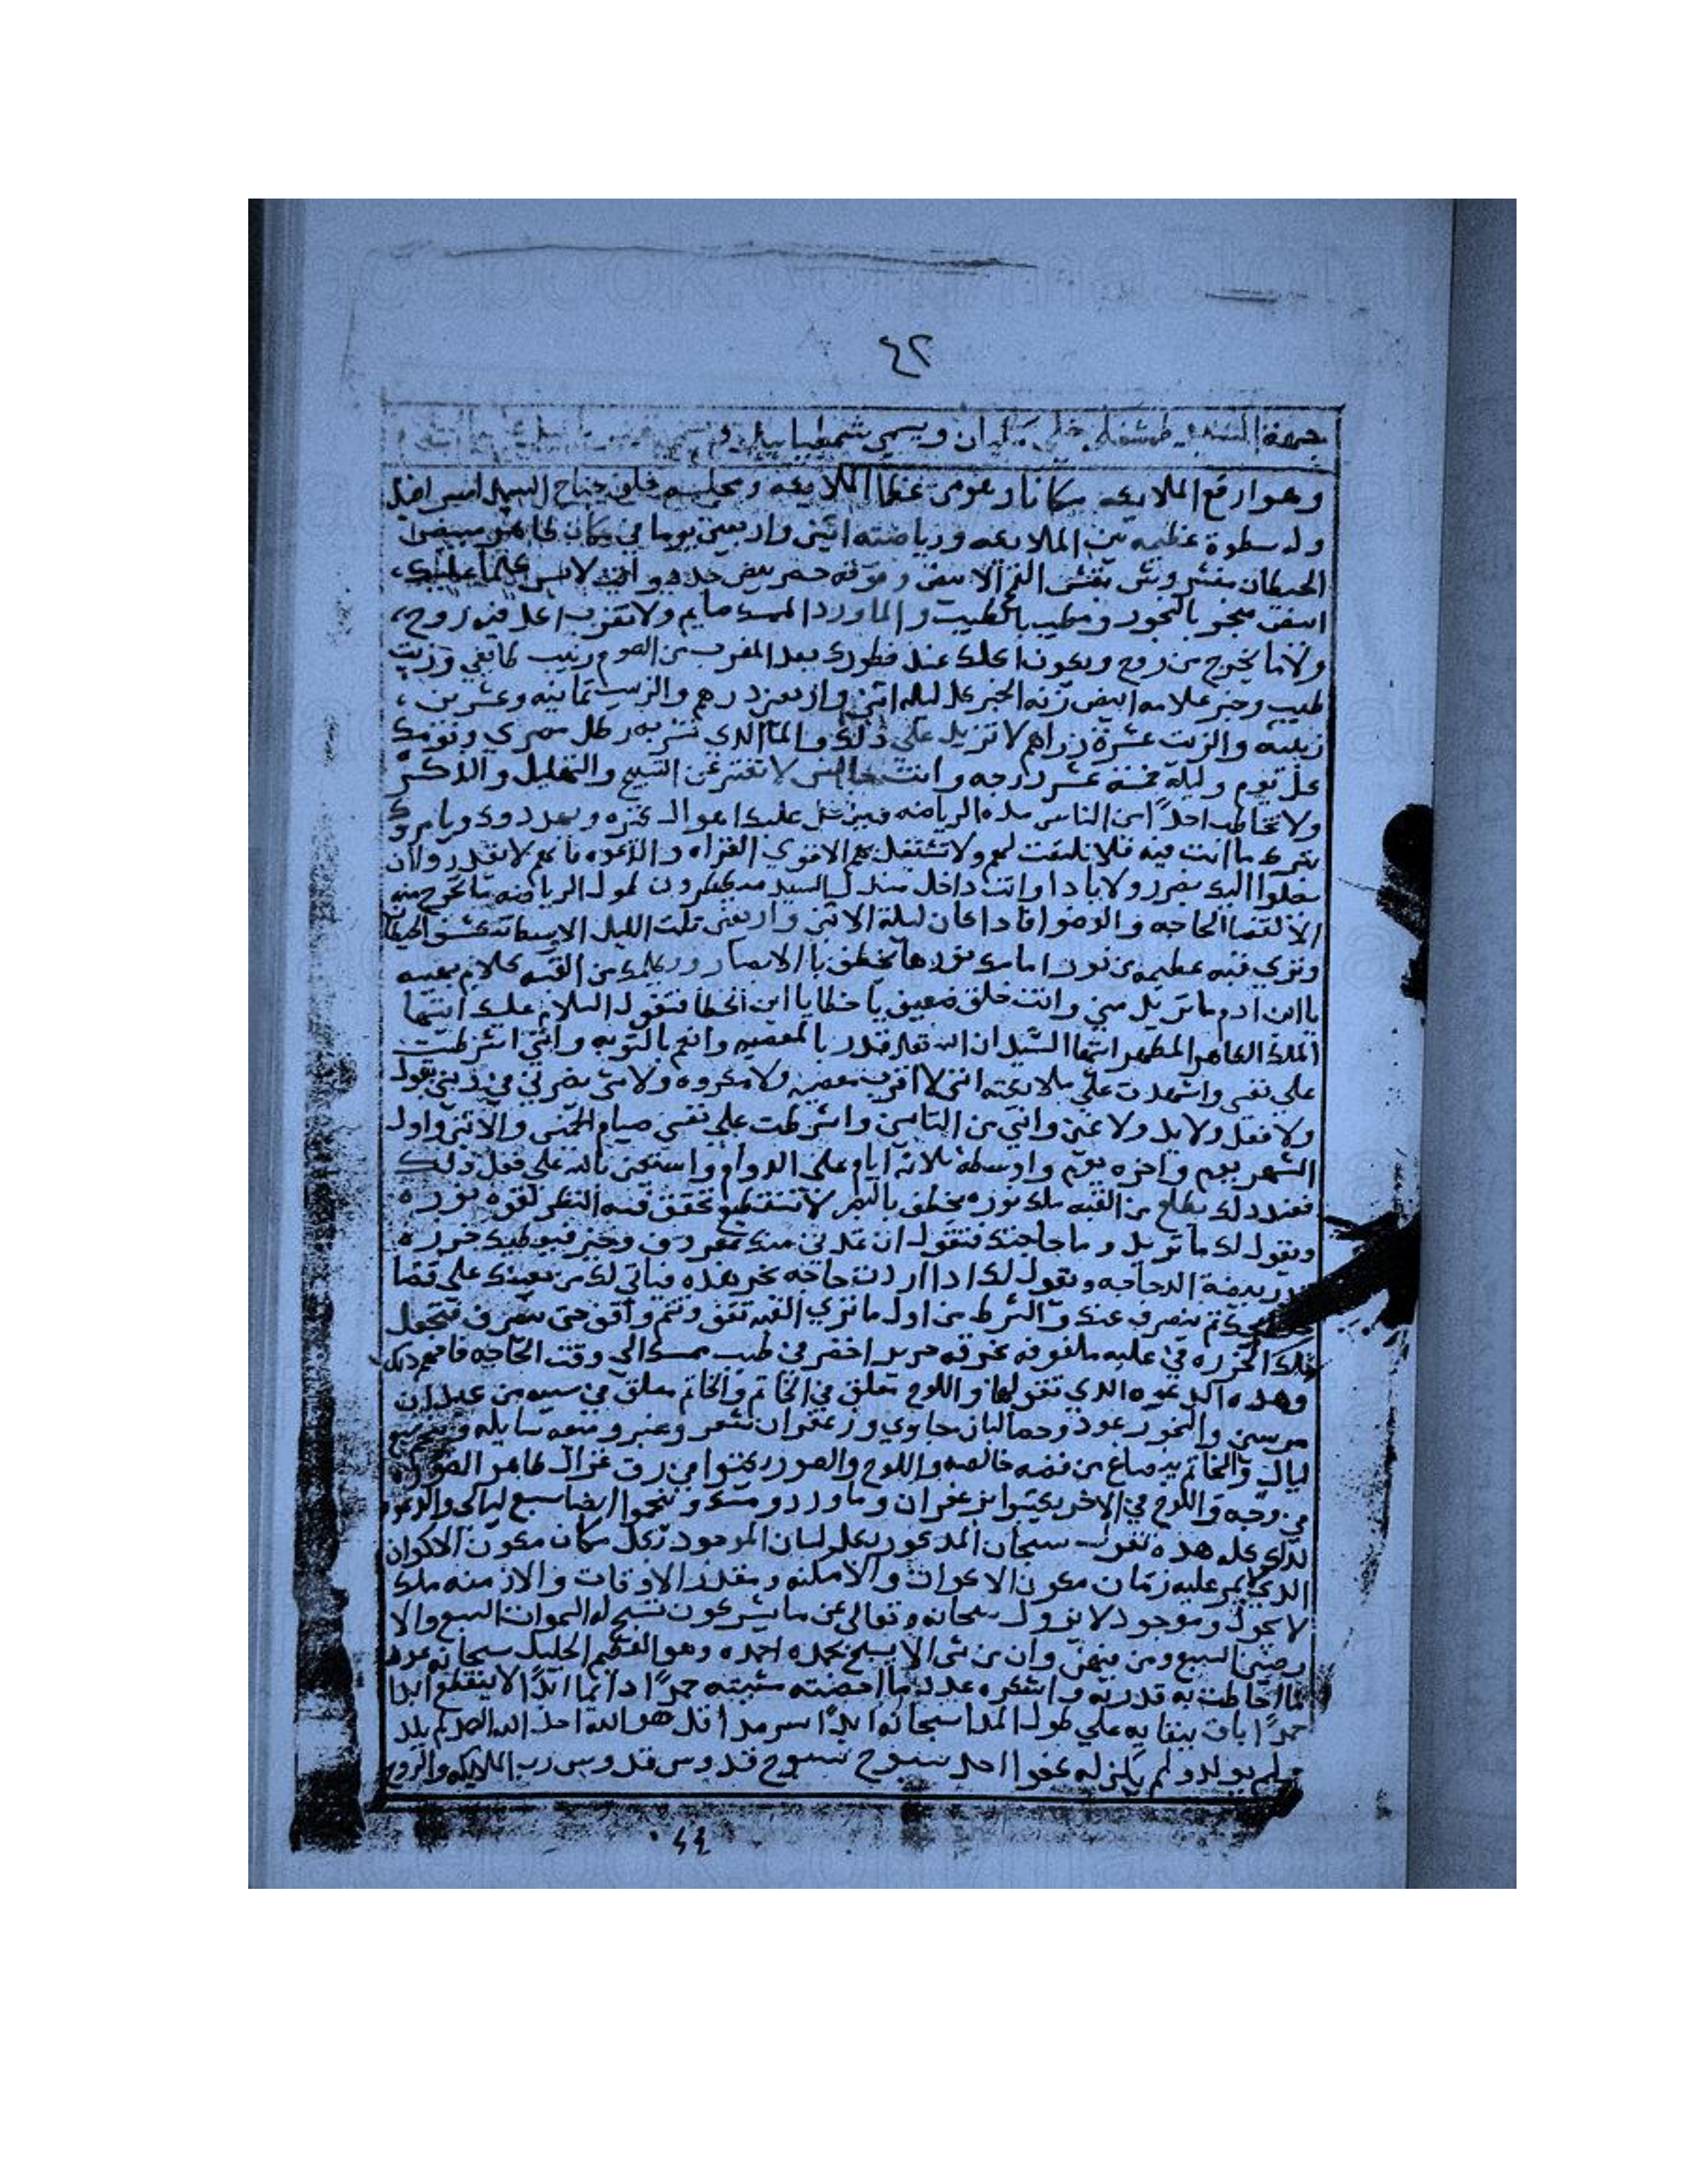 ٤٢
طهشفلهـ خلي ويسمي شمطيائيل و
وهو ارفع الملايكه مكانا وهو من عظما الملايكه ومجلسه خلف جناح السيد اسرافيل
وله سطوة عظيمه بين الملايكه ورياضته اثنين واربعين يوما في مكان طاهر مبيض
الحيطان مفشر وبشي الابيض وفوقه حصر بيض جدد وانت لابس
ابيض مبخر بالبخور ومطيب بالطيب والماورد الممسك صايم ولا تقرب اكل فيه روح
ولا ما يخرج من روح ويكون اكلك عند فطورك بعد المغرب من الصوم زبيب طايفي وزيت
طيب وخبز علامه ابيض زنه الخبز كل ليله اثنين واربعين درهم والزبيب ثمانيه وعشرين
زبيبه والزيت عشرة دراهم لا تزيد على ذلك والما الذي تشربه رطل مصري ونومك
كل يوم وليلة خمسة عشر درجه وانت جالس لا تفتر عن التسبيح والتهليل والذكر
ولا تخاطب احدًا من الناس مدة الرياضه فينزل عليك اهوال كثره ويهددوك ويامروك
بترك ما انت فيه فلا تلتفت لهم ولا تشتغل بهم الا قوي القراه والدعوه فانهم لا يقدروا ان
يصلوا اليك بضرر ولا باذا وانت داخل مندل السيد ميططرون طول الرياضه ما تخرج منه
الا لقضا الحاجه والوضوا فاذا كان ليلة الاثنين واربعين ثلث الليل الاوسط
وتري قبه عظيمه من نور امامك نورها يخطف بالابصار ويكلمك من القبه كلام بهيبه
يا ابن ادم ما تريد مني وانت خلق ضعيف يا خطا يا ابن الخطا فتقول السلام عليك ايها
الملك الطاهر المطهر ايها السيد ان الله تعالى قدر بالمعصيه وانعم بالتوبه وانني اشترطت
على نفسي واشهدت علي ملايكته انني لا اقرب معصيه ولا مكروه ولا شي يضرني في ديني بقول
ولا فعل ولا يد ولا عين وانني من التايبين واشترطت علي نفسي صيام الخميس والاثنين واول
الشهر يوم واخره يوم واوسطه ثلاثة ايام على الدوام واستعين بالله على فعل ذلك
فعند ذلك يطلع من القبه ملك نوره يخطف بالبصر لا تستطيع تحقق فيه النظر لقوه نوره
ويقول لك ما تريد وما حاجتك فتقول ان تمدني منك وخير فيعطيك خرزه
قدر بيضة الدجاجه ويقول لك اذا اردت حاجه بخر هذه فياتي لك من يعينك على قضا
ثم ينصرف عنك والشرط من اول ما تري القبه تقف وتتم واقف حتى ينصرف فتجعل
تلك الخرزه في علبه ملفوفه بخرقه حرير اخضر في طيب مسك الى وقت الحاجه فافهم ذلك
وهذه الدعوه الذي تقولها واللوح تعلق في الخاتم والخاتم معلق في سيبه من عيدان
مرسين والبخور عود وحصالبان جاوي وزعفران شعر وعنبر وميعه سايله
ليال والخاتم يصاغ من فضه خالصه واللوح والصور يكتبوا في رق غزال طاهر
في وجه واللوح في الاخر يكتبوا بزعفران وماورد ومسك وينجموا ايضا سبع ليالي
لذلك كله هذه تقول سبحان المذكور بكل لسان الموجود بكل مكان مكون الاكوان
الذي لا يمر عليه زمان مكون الاكوان والامكنه ومقدر الاوقات والازمنه ملك
لا يحول وموجود لا يزول سبحانه وتعالى عن ما يشركون تسبح له السموات السبع والا
رضين السبع ومن فيهن وان من شي الا يسبح بحمده احمده وهو العظيم الجليل سبحانه عدد
ما احاطت به قدرته واشكره عدد ما امضته مشيته حمدًا دايما ابدًا لا ينقطع ابدا
حمدًا باق ببقايه علي طول المدا سبحانه ابدًا سرمدا قل هو الله احد الله الصمد لم يلد
ولم يولد ولم يكن له كفوا احد سبوح سبوح قدوس قدوس رب الملايكه والروح
٤٤